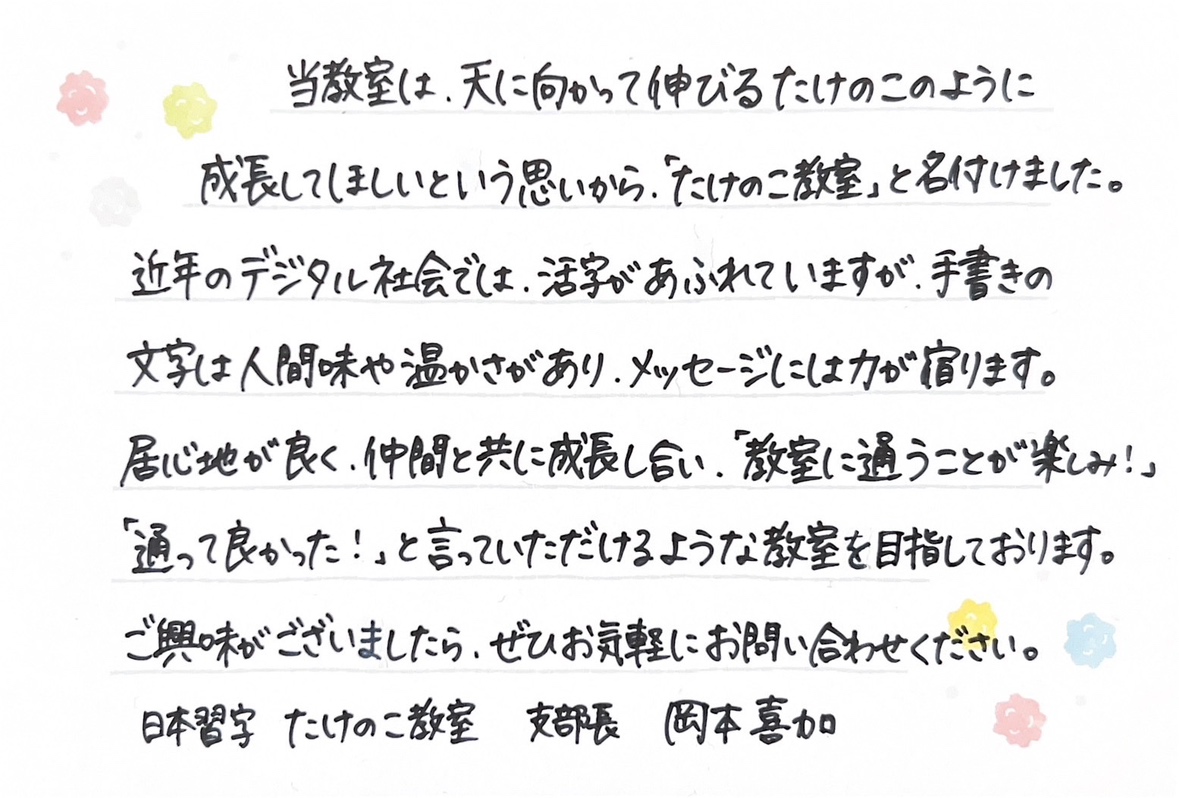 当教室は、天に向かって伸びるたけのこのように
成長してほしいという思いから、「たけのこ教室」と名付けました。
近年のデジタル社会では、活字があふれていますが、手書きの
文字は人間味や温かさがあり、メッセージには力が宿ります。
居心地が良く、仲間と共に成長し合い、「教室に通うことが楽しみ!」
「通って良かった!」と言っていただけるような教室を目指しております。
ご興味がございましたら、ぜひお気軽にお問い合わせください。
日本習字 たけのこ教室 支部長 岡本喜加